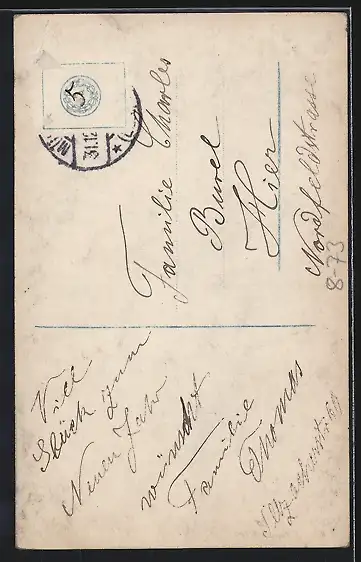 Viel
Glück zum
Neuen Jahr
wünscht
Familie
Thomas
5
31.12
Familie Charles
Burel
Hier
Nordfeldstrasse
8-73